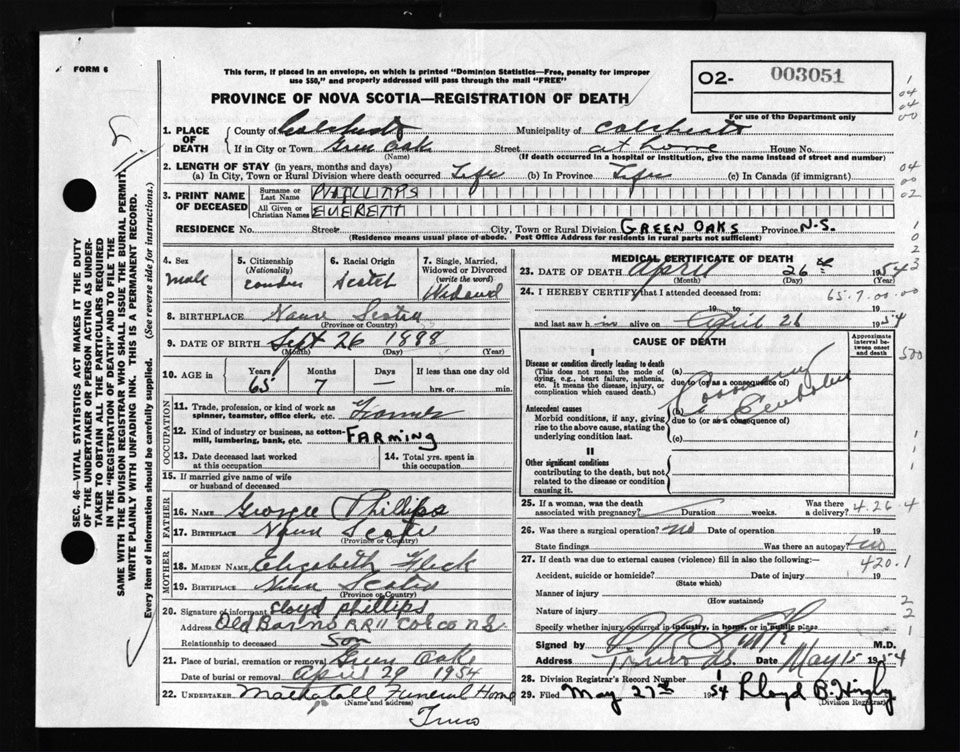 FORM 6
This form, if placed in an envelope, on which is printed "Dominion Statistics—Free, penalty for improper
use $50," and properly addressed will pass through the mail "FREE"
02- 003051
PROVINCE OF NOVA SCOTIA—REGISTRATION OF DEATH
For use of the Department only
1. PLACE OF DEATH
County of Colchester Municipality of Colchester
If in City or Town Green Oak Street at home House No.
(Name) (If death occurred in a hospital or institution, give the name instead of street and number)
2. LENGTH OF STAY (in years, months and days)
(a) In City, Town or Rural Division where death occurred Life (b) In Province Life (c) In Canada (if immigrant)
3. PRINT NAME OF DECEASED
Surname or Last Name PHILLIPS
All Given or Christian Names EVERETT
RESIDENCE No. Street City, Town or Rural Division GREEN OAKS Province N.S.
(Residence means usual place of abode. Post Office Address for residents in rural parts not sufficient)
4. Sex male
5. Citizenship (Nationality)
6. Racial Origin Scotch
7. Single, Married, Widowed or Divorced (write the word) Widowed
8. BIRTHPLACE Nova Scotia
(Province or Country)
9. DATE OF BIRTH Sept 26 1888
(Month) (Day) (Year)
10. AGE in Years 65 Months 7 Days — If less than one day
hrs. or min.
OCCUPATION
11. Trade, profession, or kind of work as spinner, teamster, office clerk, etc. Farmer
12. Kind of industry or business, as cotton-mill, lumbering, bank, etc. FARMING
13. Date deceased last worked at this occupation
14. Total yrs. spent in this occupation
15. If married give name of wife or husband of deceased
FATHER
16. NAME George Phillips
17. BIRTHPLACE Nova Scotia
(Province or Country)
MOTHER
18. MAIDEN NAME Elizabeth Fleck
19. BIRTHPLACE Nova Scotia
(Province or Country)
20. Signature of informant Lloyd phillips
Address Old Barns RR II COL CO N.S.
Relationship to deceased Son
21. Place of burial, cremation or removal Green Oaks
Date of burial or removal April 29 1954
22. UNDERTAKER Mattatall Funeral Home
(Name and address)
Truro
MEDICAL CERTIFICATE OF DEATH
23. DATE OF DEATH April 26th 1954
(Month) (Day) (Year)
24. I HEREBY CERTIFY that I attended deceased from: 65.7.00.00
19 to 19
and last saw him alive on April 26 1954
CAUSE OF DEATH
Approximate interval between onset and death
I
Disease or condition directly leading to death
(This does not mean the mode of dying, e.g., heart failure, asthenia, etc. It means the disease, injury, or complication which caused death.)
(a)
due to (or as a consequence of) Coronary
Antecedent causes
Morbid conditions, if any, giving rise to the above cause, stating the underlying condition last.
(b) Embolus
due to (or as a consequence of)
(c)
II
Other significant conditions
contributing to the death, but not related to the disease or condition causing it.
25. If a woman, was the death associated with pregnancy? Duration weeks. Was there a delivery? 4.26.4
26. Was there a surgical operation? no Date of operation 19
State findings Was there an autopsy? no
27. If death was due to external causes (violence) fill in also the following:— 420.1
Accident, suicide or homicide? Date of injury 19
(State which)
Manner of injury
(How sustained)
Nature of injury
Specify whether injury occurred in industry, in home, or in public place
Signed by M.D.
Address Truro NS. Date May 15 1954
28. Division Registrar's Record Number
29. Filed May 27th 1954 Lloyd B. Higby
(Division Registrar)
SEC. 46—VITAL STATISTICS ACT MAKES IT THE DUTY
OF THE UNDERTAKER OR PERSON ACTING AS UNDER-
TAKER TO OBTAIN ALL THE PARTICULARS REQUIRED
IN THE "REGISTRATION OF DEATH" AND TO FILE THE
SAME WITH THE DIVISION REGISTRAR WHO SHALL ISSUE THE BURIAL PERMIT.
WRITE PLAINLY WITH UNFADING INK. THIS IS A PERMANENT RECORD.
Every item of information should be carefully supplied. (See reverse side for instructions.)
1
04
04
00
04
00
02
1
0
2
3
500
1
1
1
2
2
1